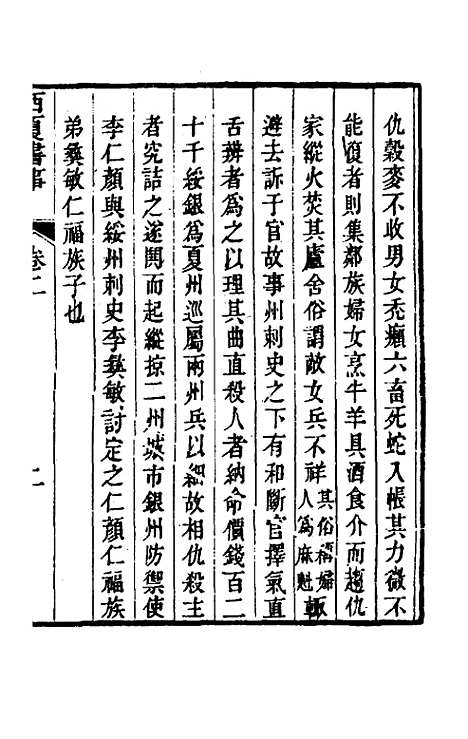 仇穀麥不收男女禿癩六畜死蛇入帳其力微不
能復者則集鄰族婦女烹牛羊具酒食介而趨仇
家縱火焚其廬舍俗謂敵女兵不祥其俗稱婦人為麻魁輒
避去訴于官故事州刺史之下有和斷官擇氣直
舌辨者為之以理其曲直殺人者納命價錢百二
十千綏銀為夏州巡屬兩州兵以細故相仇殺主
者究詰之遂鬨而起縱掠二州城市銀州防禦使
李仁顏與綏州刺史李彝敏討定之仁顏仁福族
弟彝敏仁福族子也
西夏書事
卷二
二